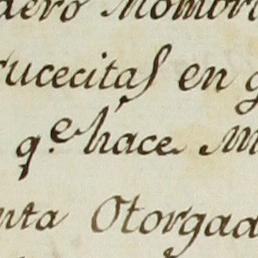 dero Nombr
rucecitas en g
q.e hace M
nta Otorgad